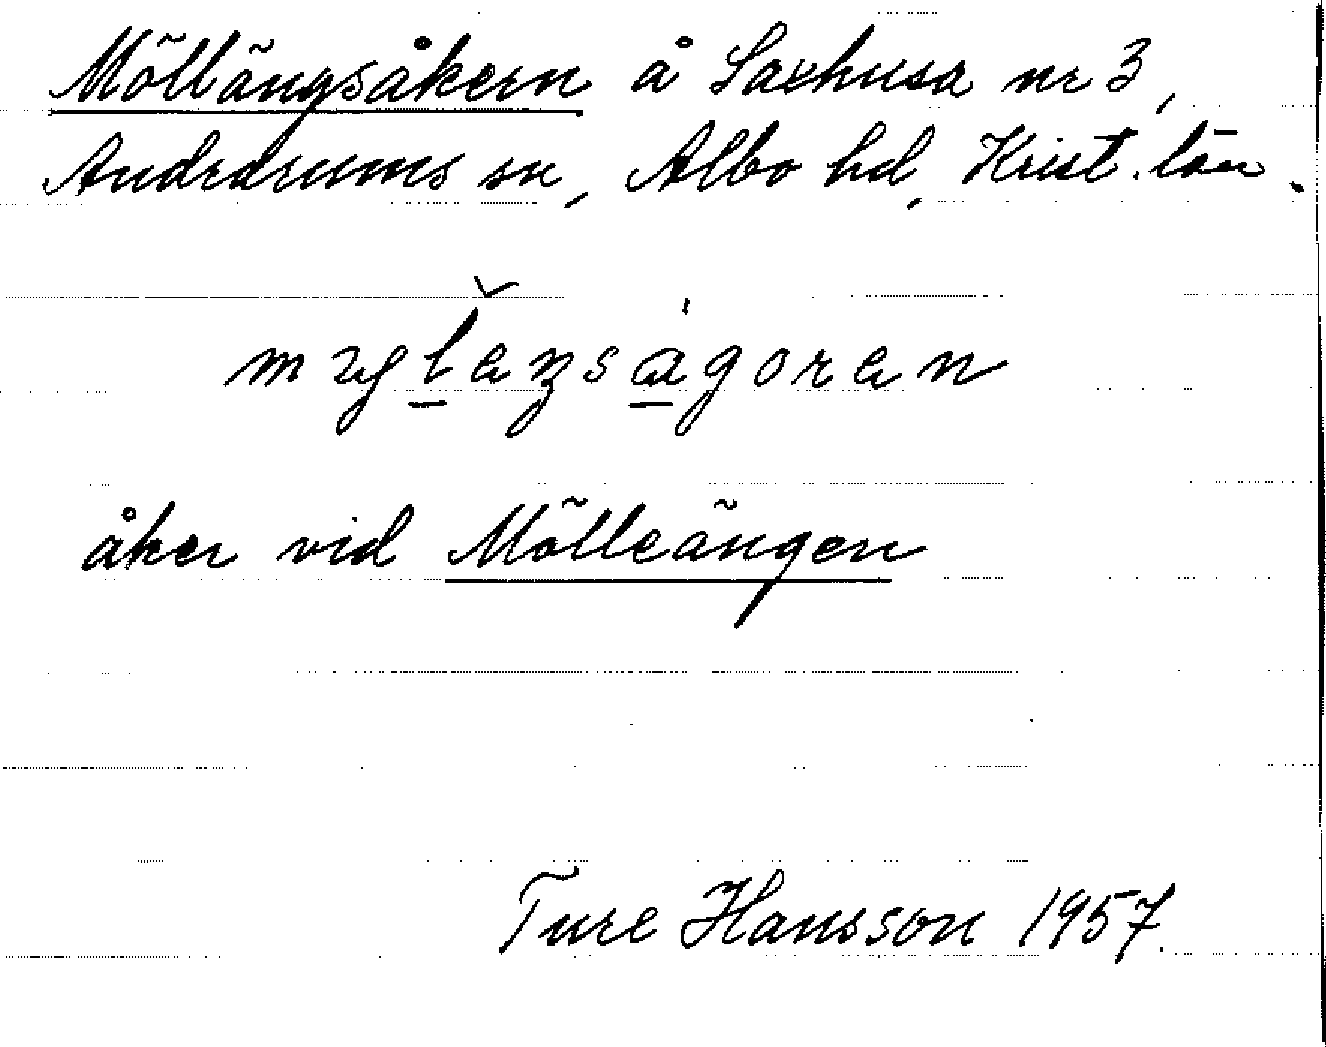 Möllängsåkern å Saxhusa nr 3,
Andrarums sn, Albo hd, Krist. län.
åker vid Mölleängen
Ture Hansson 1957.